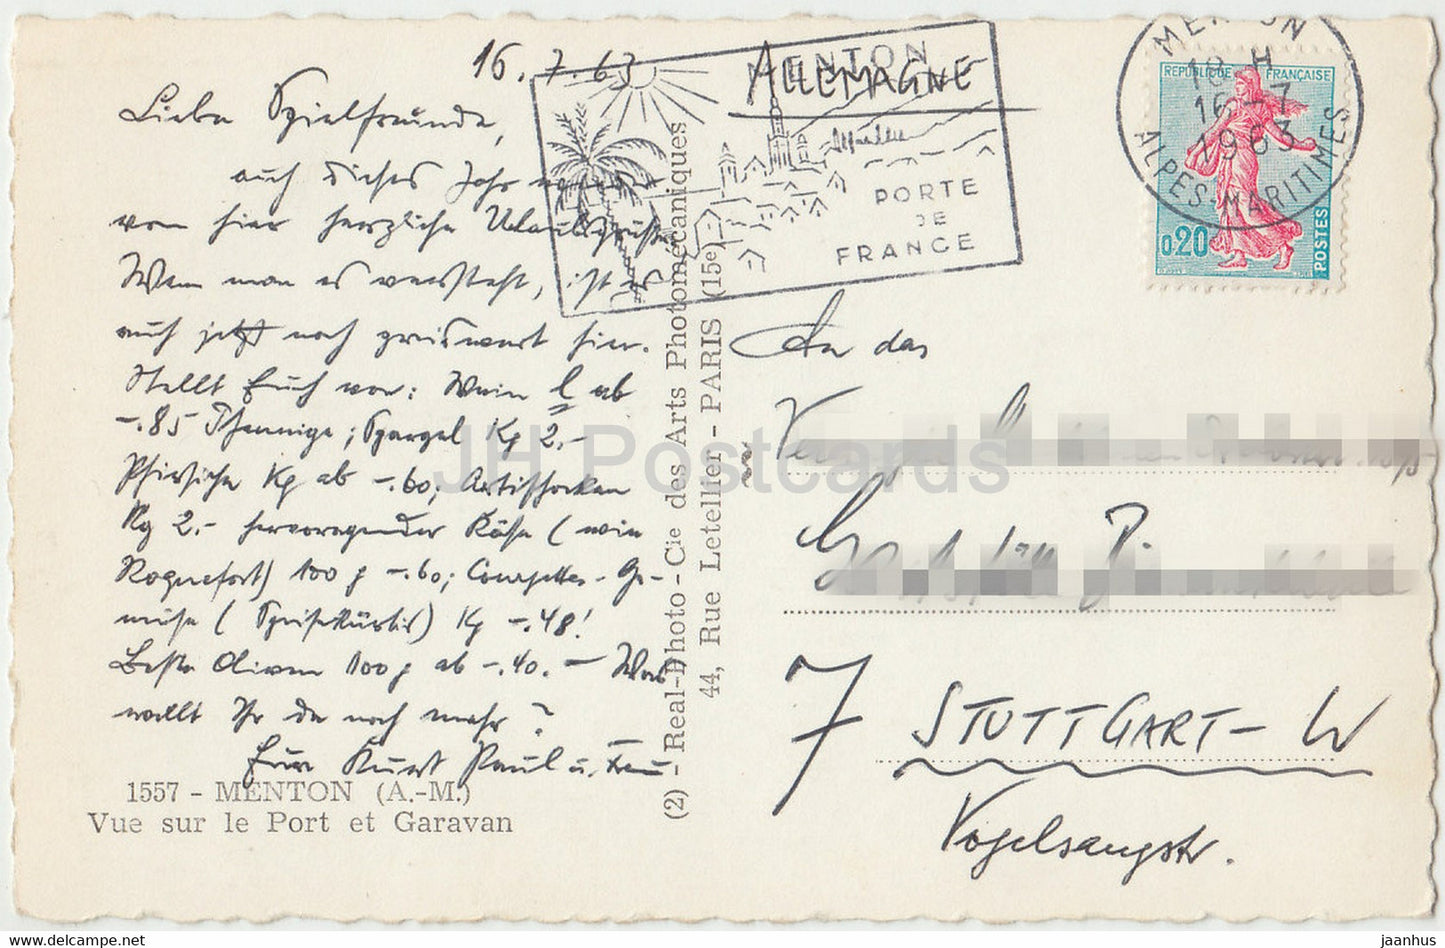 16.7.63
Liebe Spielfreunde,
auch dieses Jahr
von hier herzliche Urlaubsgrüße
Wenn man es versteht, ist es
auch jetzt noch preiswert hier.
Stellt Euch vor: Wein l ab
-.85 Pfennige; Spargel Kg 2.-
Pfirsiche Kg ab -.60; Artischocken
Kg 2.- hervorragender Käse (wie
Roquefort) 100 g -.60; Courgettes-Ge-
müse (Speisekürbis) Kg -.48!
Beste Oliven 100 g ab -.40. - Was
wollt Ihr da noch mehr?
Eure Kurt Paul u. Frau
1557 - MENTON (A.-M.)
Vue sur le Port et Garavan
(2) - Real-Photo - Cie des Arts Photomécaniques
44, Rue Letellier - PARIS (15e)
MENTON
PORTE
DE
FRANCE
ALLEMAGNE
MENTON
18 H
16 - 7
1963
ALPES-MARITIMES
RÉPUBLIQUE FRANÇAISE
0.20
POSTES
An das
7 STUTTGART - W
Vogelsangstr.
JH Postcards
www.delcampe.net
jaanhus